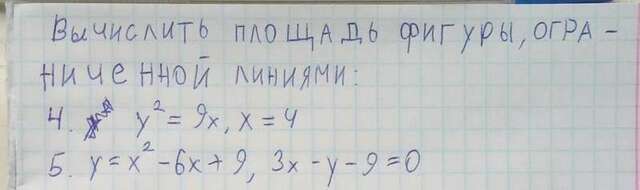 Вычислить площадь фигуры, огра-
ниченной линиями:
4. y² = 9x, x = 4
5. y = x² - 6x + 9, 3x - y - 9 = 0